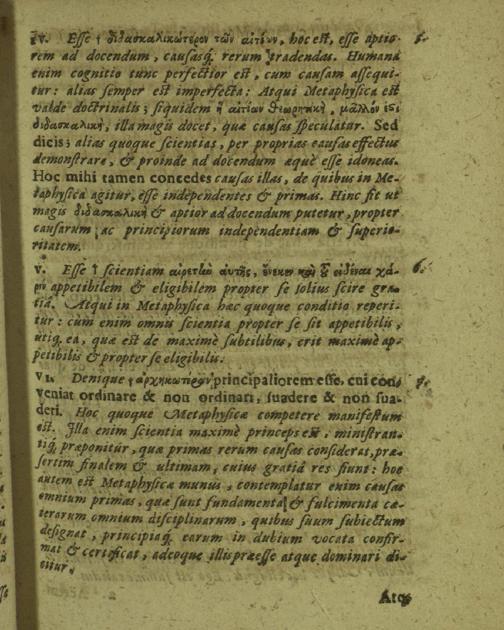 IV. Esse τ̀ διδασκαλικώτερον τῶν αἰτίων, hoc est, esse aptio- 5.
rem ad docendum, causasq́ rerum tradendas. Humana
enim cognitio tunc perfectior est, cum causam assequi-
tur: alias semper est imperfecta: Atqui Metaphysica est
valde doctrinalis; siquidem ἡ αἰτίων θεωρητικὴ, μᾶλλον ἐςὶ
διδασκαλικὴ, illa magis docet, quæ causas speculatur. Sed
dicis; alias quoque scientias, per proprias causas effectus
demonstrare, & proinde ad docendum æquè esse idoneas.
Hoc mihi tamen concedes causas illas, de quibus in Me-
taphysica agitur, esse independentes & primas. Hinc fit ut
magis διδασκαλικὴ & aptior ad docendum putetur, propter
causarum, ac principiorum independentiam & superio-
ritatem.
V. Esse τ̀ scientiam αἱρετὼ αὐτῆς, ἕνεκεν καὶ τοῦ εἰδέναι χά- 6.
ριν appetibilem & eligibilem propter se solius scire gra-
tiâ. Atqui in Metaphysica hæc quoque conditio reperi-
tur: cùm enim omnis scientia propter se sit appetibilis,
utiq́, ea, quæ est de maximè subtilibus, erit maximè ap-
petibilis & propter se eligibilis.
VI. Denique τ̀ ἀρχικωτέραν principaliorem esse, cui con- 7.
veniat ordinare & non ordinari, suadere & non sua-
deri. Hoc quoque Metaphysicæ competere manifestum
est. Illa enim scientia maximè princeps est, ministran-
tiq́, præponitur, quæ primas rerum causas considerat, præ-
sertim finalem & ultimam, cuius gratiâ res fiunt: hoc
autem est Metaphysicæ munus, contemplatur enim causas
omnium primas, quæ sunt fundamenta & fulcimenta cæ-
terarum omnium disciplinarum, quibus suum subiectum
designat, principiaq́, earum in dubium vocata confir-
mat & certificat, adeoque illis præesse atque dominari di-
citur.
Atq;